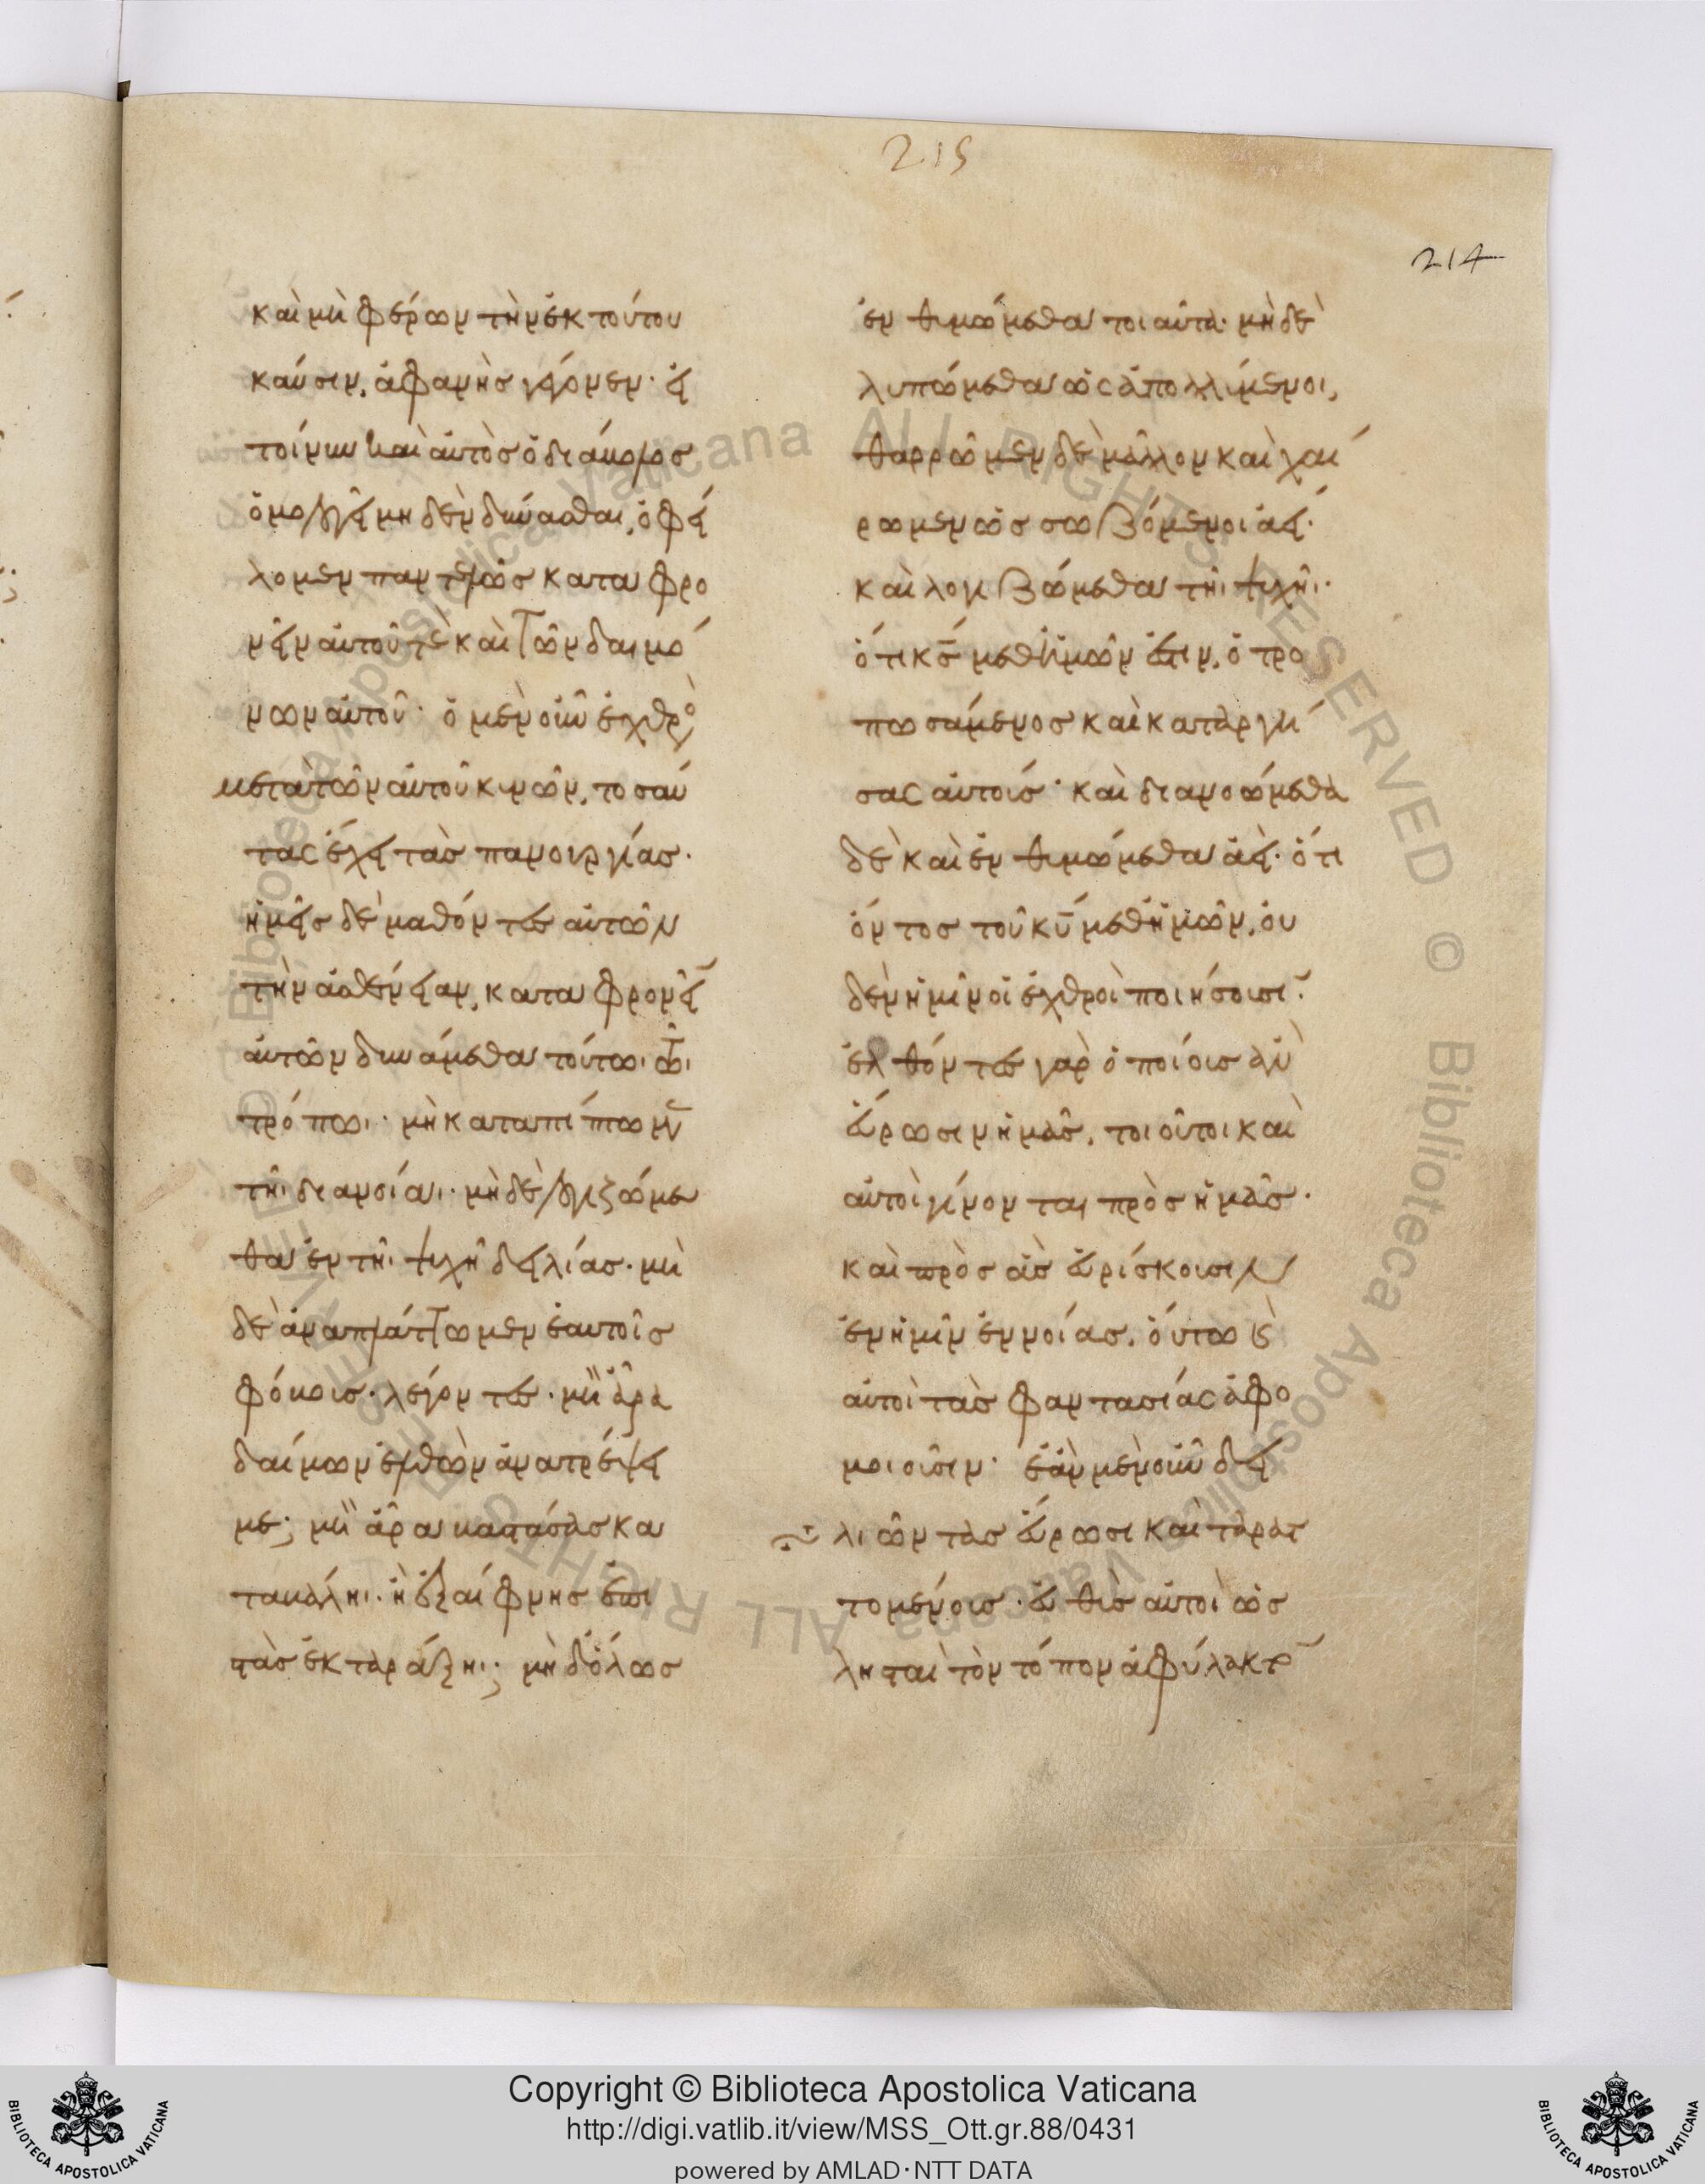 215
214
καὶ μὴ φέρων τὴν ἐκ τούτου
καῦσιν, ἀφανὴς γέγονεν· εἰ
τοίνυν καὶ αὐτὸς ὁ διάβολος
ὁμολογεῖ μηδὲν δύνασθαι, ὀφεί
λομεν παντελῶς καταφρο
νεῖν αὐτοῦ τὲ καὶ τῶν δαιμό
νων αὐτοῦ· ὁ μὲν οὖν ἐχθρὸ
μετὰ τῶν αὐτοῦ κυνῶν, τοσαύ
τας ἔχει τὰς πανουργίας·
ἡμεῖς δὲ μαθόντες αὐτῶν
τὴν ἀσθένειαν, καταφρονεῖ
αὐτῶν δυνάμεθα τούτωι τῶι
τρόπωι· μὴ καταπίπτωμ
τῆι διανοίαι· μὴ δὲ λογιζώμε
θα ἐν τῆι ψυχῆ δειλίας· μὴ
δὲ ἀναπλάττωμεν ἑαυτοῖς
φόβους· λέγοντες· μὴ ἄρα
δαίμων ἐλθὼν ἀνατρέψει
με; μὴ ἄρα βαστάσας κα
ταβάληι· ἢ ἐξαίφνης ἐπι
στὰς ἐκταράξηι; μὴ δ' ὅλως
ἐνθυμώμεθα τοιαῦτα· μὴ δὲ
λυπώμεθα ὡς ἀπολλύμενοι,
θαρρῶμεν δὲ μᾶλλον καὶ χαί
ρωμεν ὡς σωζόμενοι ἀεί·
καὶ λογιζώμεθα τῆι ψυχῆι·
ὅτι κς μεθ' ἡμῶν ἐστιν, ὁ τρο
πωσάμενος καὶ καταργή
σας αὐτούς· καὶ διανοώμεθα
δὲ καὶ ἐνθυμώμεθα ἀεὶ· ὅτι
ὄντος τοῦ κυ μεθ' ἡμῶν, οὐ
δὲν ἡμῖν οἱ ἐχθροὶ ποιήσουσι·
ἐλθόντες γὰρ ὁποίους ἂν
εὕρωσιν ἡμᾶς, τοιοῦτοι καὶ
αὐτοὶ γίνονται πρὸς ἡμᾶς·
καὶ πρὸς ἃς εὑρίσκουσιν
ἐν ἡμῖν ἐννοίας, οὕτω καὶ
αὐτοὶ τὰς φαντασίας ἀφο
μοιοῦσιν· ἐὰν μὲν οὖν δει
λιῶντας εὕρωσι καὶ ταρατ
τομένους· εὐθὺς αὐτοὶ ὡς
λησταὶ τὸν τόπον ἀφύλακτο
Copyright © Biblioteca Apostolica Vaticana
http://digi.vatlib.it/view/MSS_Ott.gr.88/0431
powered by AMLAD·NTT DATA